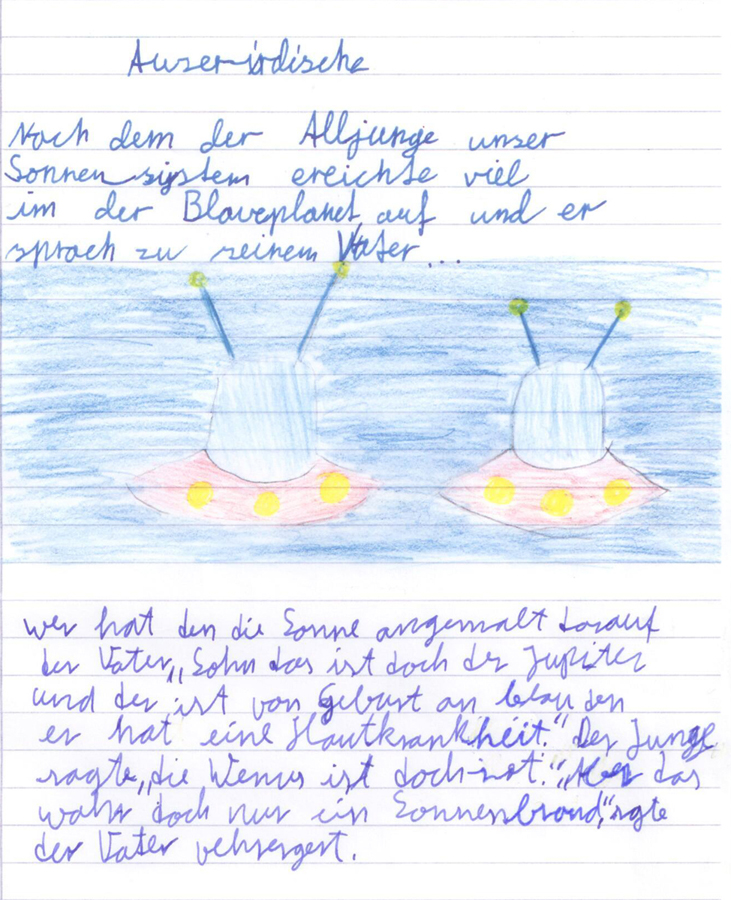 Auserirdische
Noch dem der Alljunge unser
Sonnensystem ereichte viel
im der Blaueplanet auf und er
sprach zu seinem Vater...
wer hat den die Sonne angemalt darauf
der Vater,„Sohn das ist doch der Jupiter
und der ist von Geburt an blau den
er hat eine Hautkrankheit.“ Der Junge
sagte,„die Wenus ist doch rot.“„Aber das
wahr doch nur ein Sonnenbrand“, sagte
der Vater